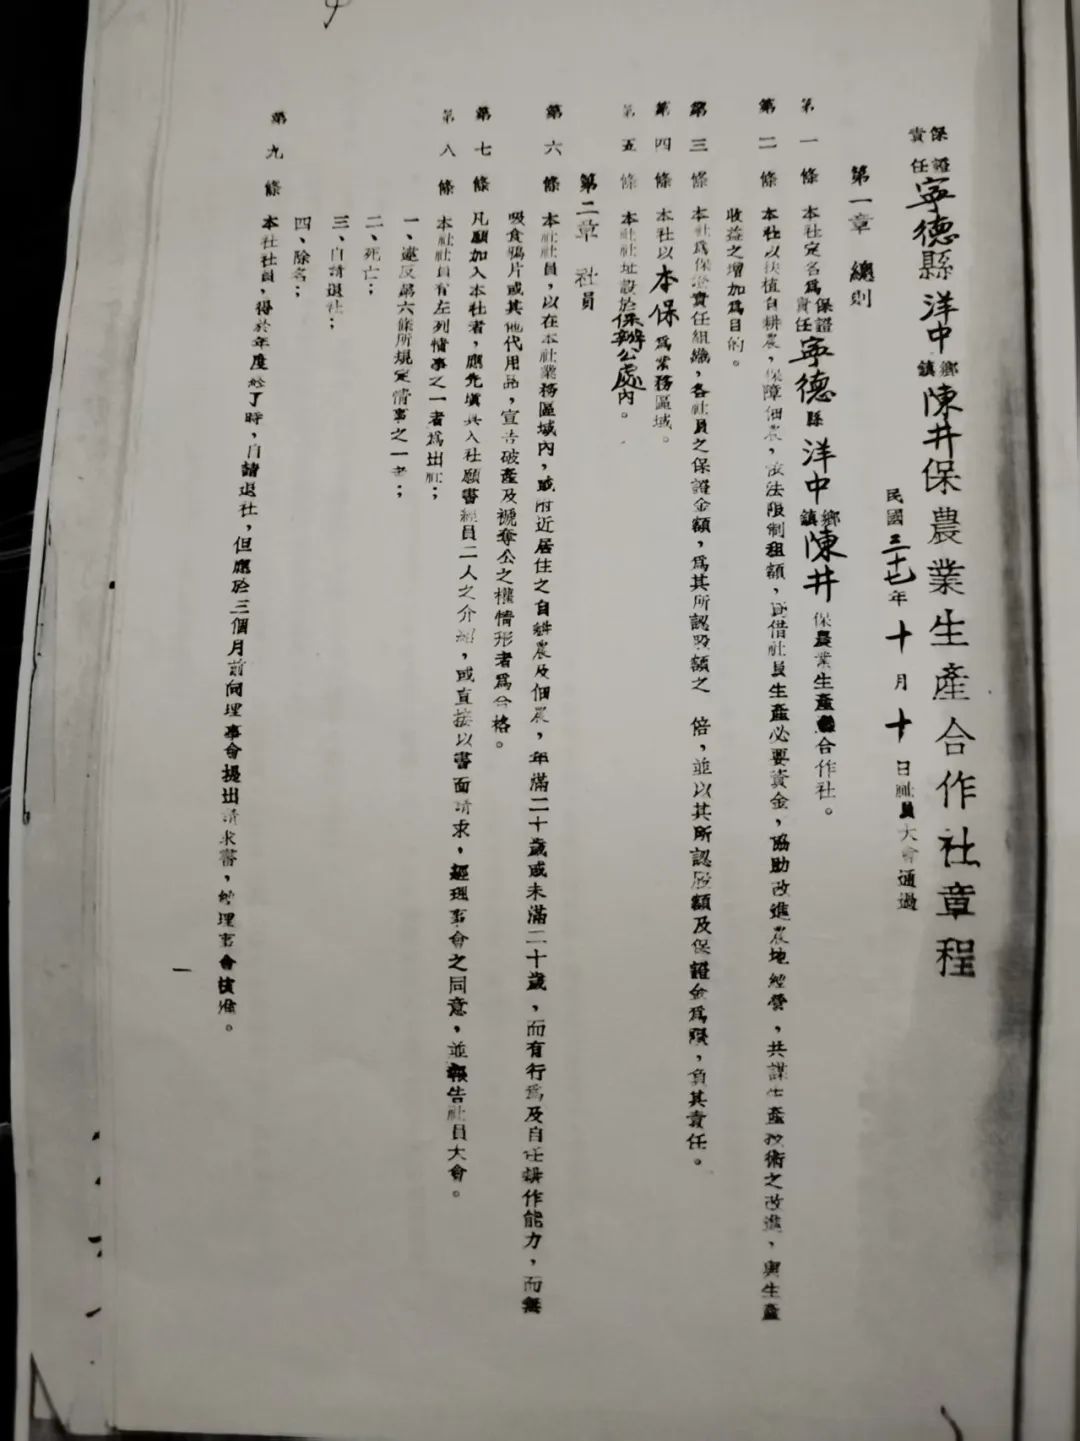 保證責任寧德縣洋中鄉鎮陳井保農業生產合作社章程
民國三十七年十月十日社員大會通過
第一章 總則
第一條 本社定名為保證責任寧德縣洋中鄉鎮陳井保農業生產合作社。
第二條 本社以扶植自耕農,保障佃農,依法限制租額,貸借社員生產必要資金,協助改進農地經營,共謀生產技術之改進,與生產
收益之增加為目的。
第三條 本社為保證責任組織,各社員之保證金額,為其所認股額之 倍,並以其所認股額及保證金為限,負其責任。
第四條 本社以本保為業務區域。
第五條 本社社址設於保辦公處內。
第二章 社員
第六條 本社社員,以在本社業務區域內,或附近居住之自耕農及佃農,年滿二十歲或未滿二十歲,而有行為及自任耕作能力,而無
吸食鴉片或其他代用品,宣告破產及褫奪公之權情形者為合格。
第七條 凡願加入本社者,應先填具入社願書經員二人之介紹,或直接以書面請求,經理事會之同意,並報告社員大會。
第八條 本社社員有左列情事之一者為出社;
一、違反第六條所規定情事之一者;
二、死亡;
三、自請退社;
四、除名;
第九條 本社社員,得於年度終了時,自請退社,但應於三個月前向理事會提出請求書,經理事會核准。
一